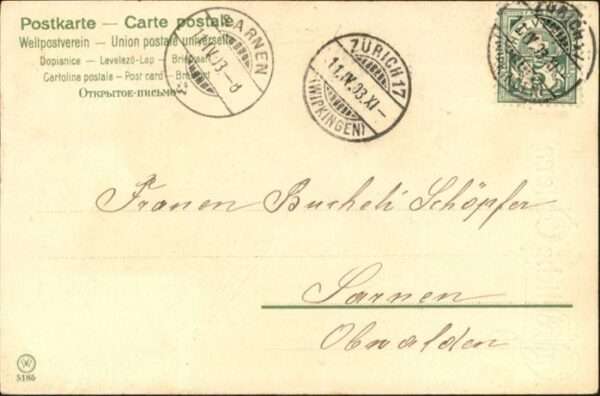 Postkarte – Carte postale
Weltpostverein – Union postale universelle
Dopisnice – Levelező-Lap – Briefkaart
Cartolina postale – Post card –
Открытое-письмо
SARNEN
ZÜRICH 17
11.IV.03.XI–
(WIPKINGEN)
ZÜRICH 17
Frauen Bucheli Schöpfer
Sarnen
Obwalden
W
5186